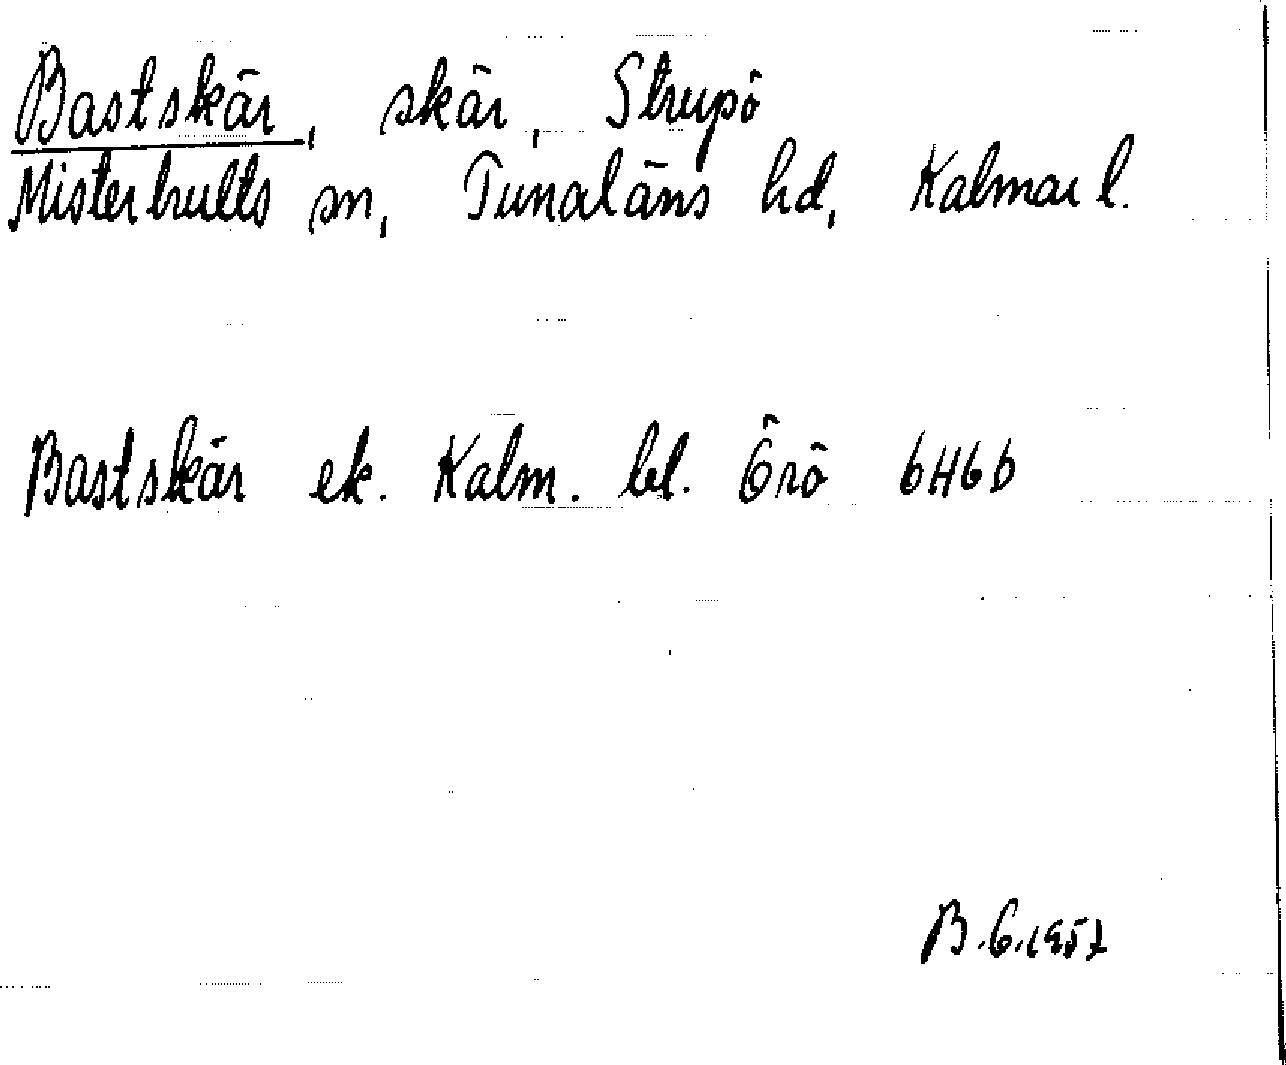 Bastskär, skär, Strupö
Misterhults sn, Tunaläns hd, Kalmar l.
Bastskär ek. Kalm. bl. Örö 6H6b
B.G.1957